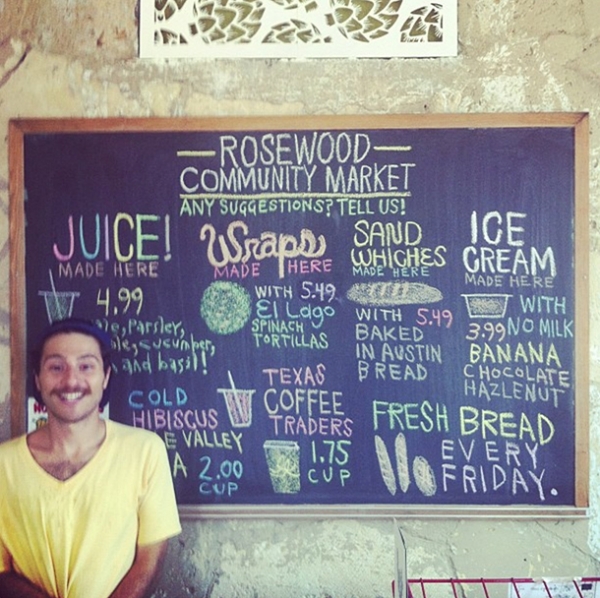 ROSEWOOD
COMMUNITY MARKET
ANY SUGGESTIONS? TELL US!
JUICE!
MADE HERE
4.99
Parsley,
cucumber,
and basil!
Wraps
MADE HERE
WITH 5.49
El Lago
SPINACH
TORTILLAS
SAND
WHICHES
MADE HERE
WITH 5.49
BAKED
IN AUSTIN
BREAD
ICE
CREAM
MADE HERE
WITH
3.99 NO MILK
BANANA
CHOCOLATE
HAZLENUT
COLD
HIBISCUS
VALLEY
2.00
CUP
TEXAS
COFFEE
TRADERS
1.75
CUP
FRESH BREAD
EVERY
FRIDAY.